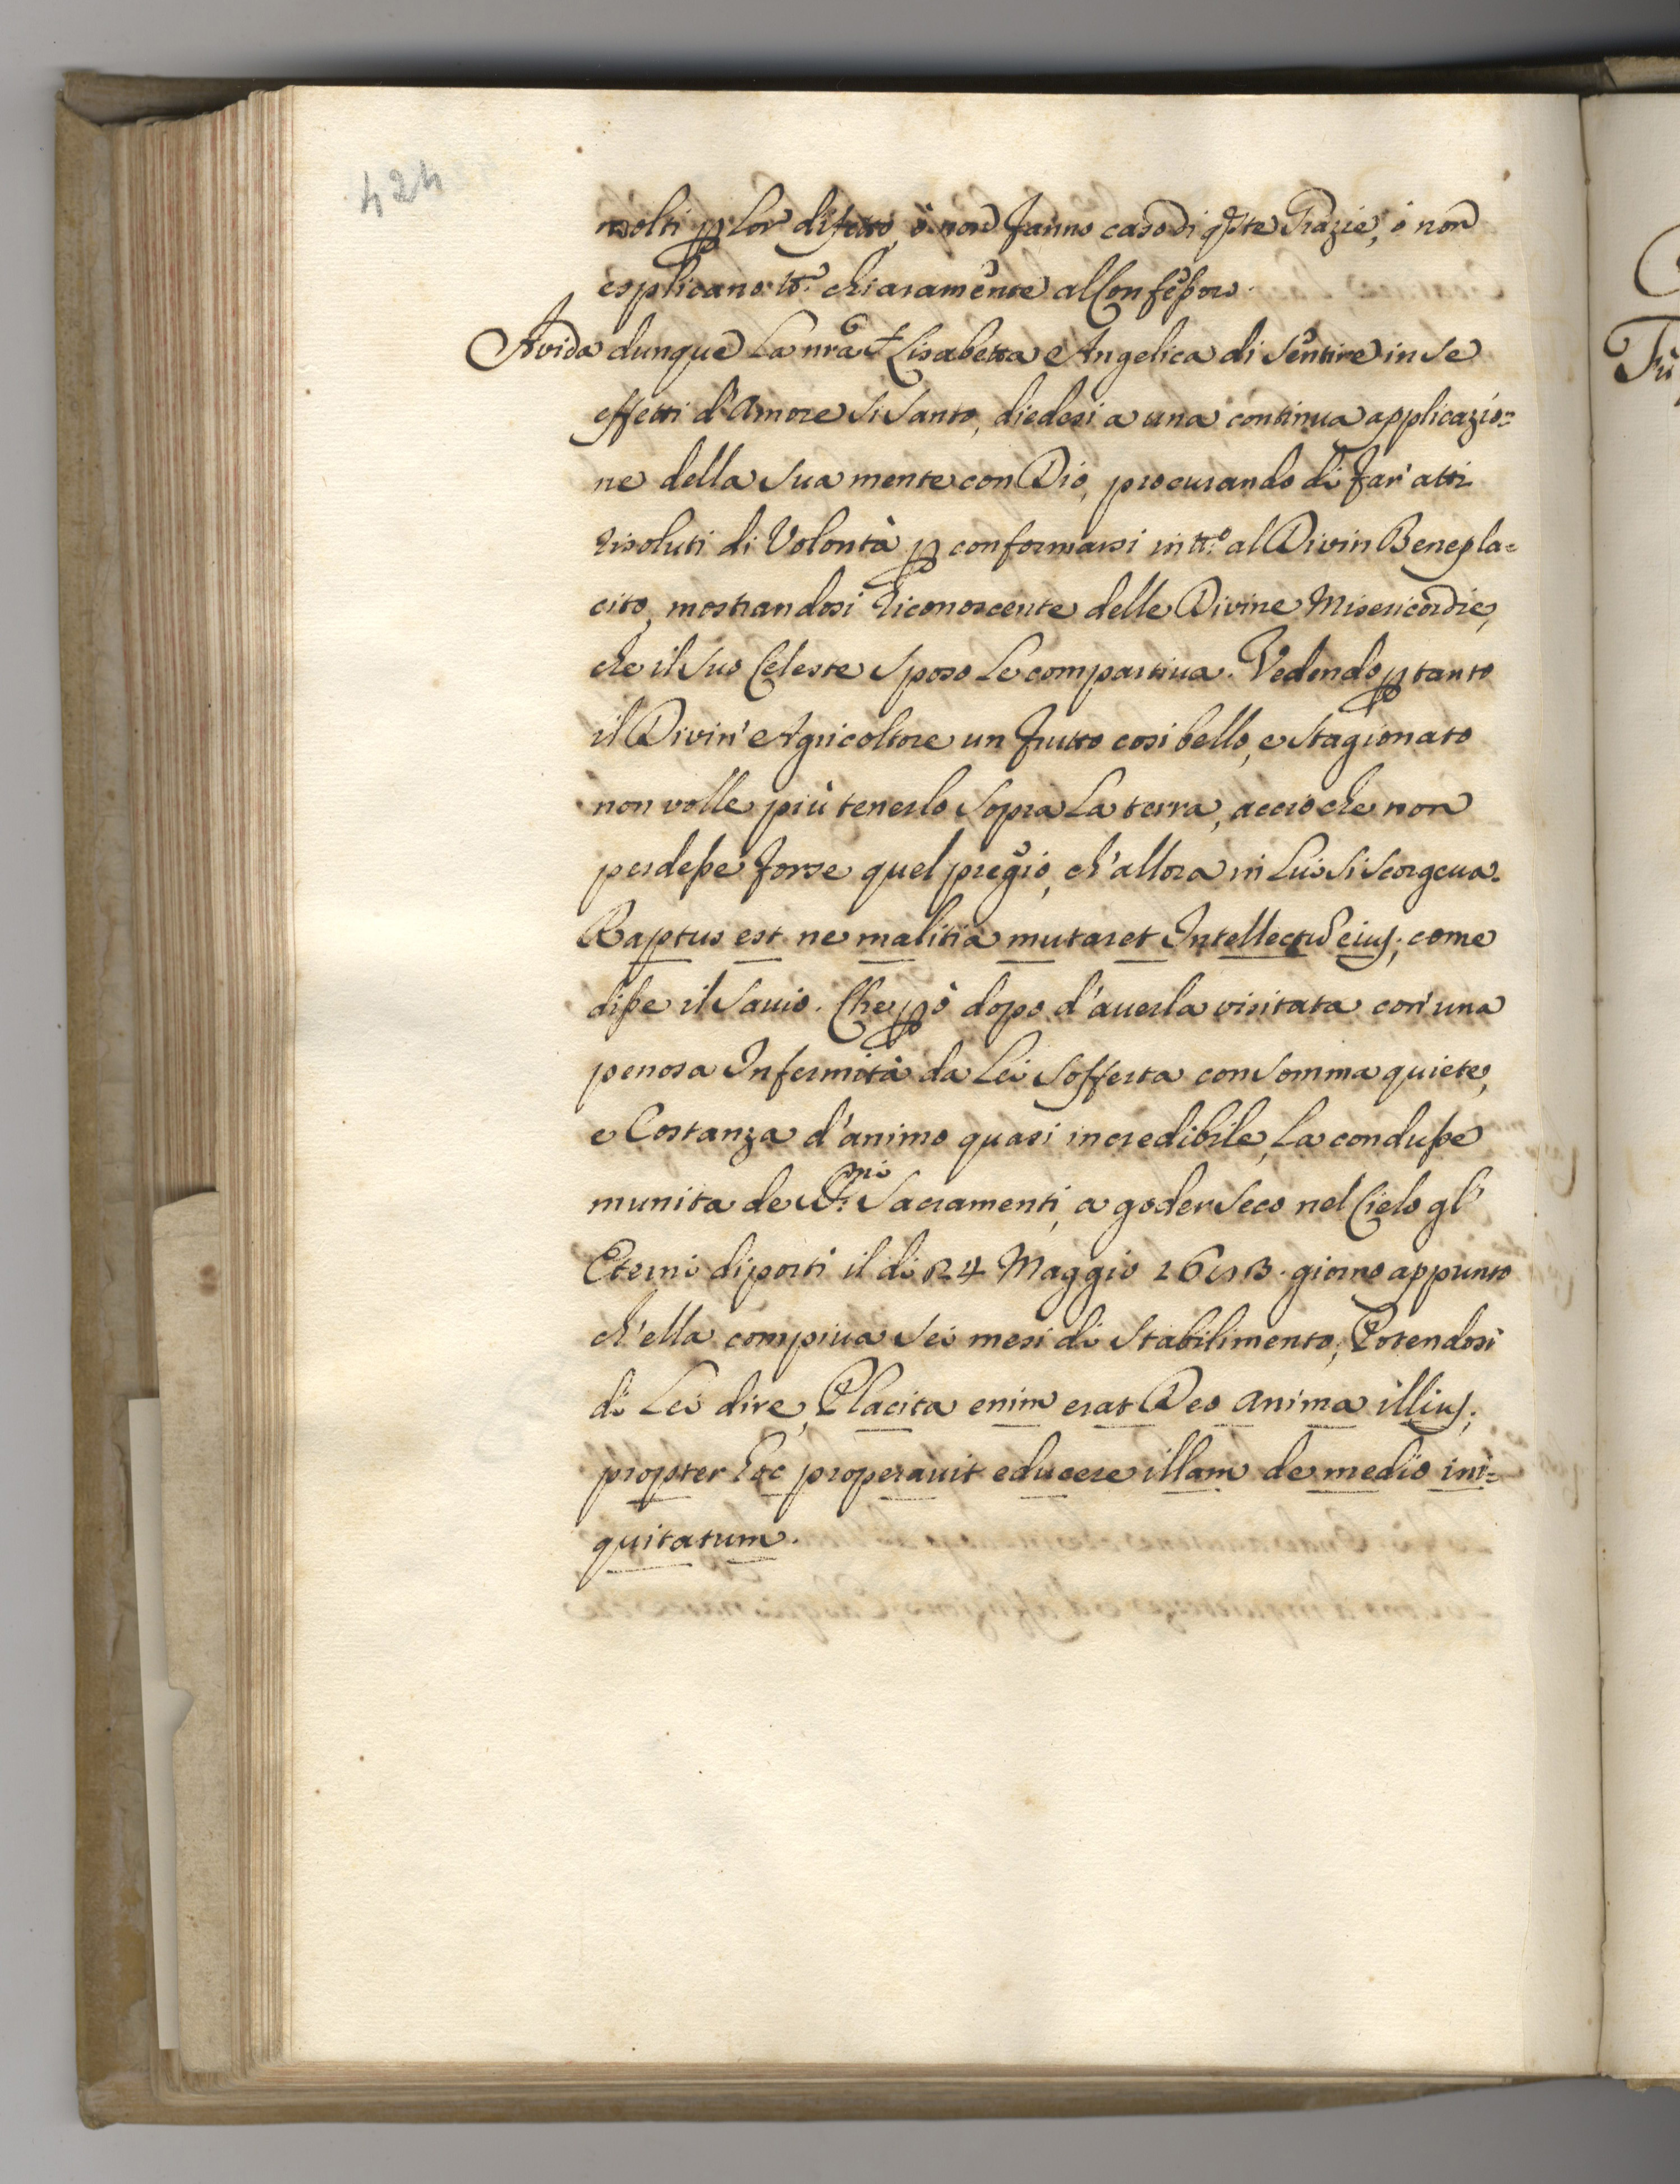 424
molti p lor difetto, ò non fanno caso di qste Grazie, ò non
esplicano tt.º chiaramente al Confessore.
Avida dunque la nrã Lisabetta Angelica di sentire in se
effetti d'Amore si santo, diedesi a una continua applicazio=
ne della sua mente con Dio, procurando di far' atti
risoluti di Volontà p conformarsi in tt.º al Divin Benepla=
cito, mostrandosi riconoscente delle Divine Misericordie,
che il suo Celeste Sposo le compartiua. Vedendo ptanto
il Divin' Agricoltore un frutto cosi bello, e stagionato
non volle più tenerlo sopra la terra, accio che non
perdesse forse quel pregio, ch'allora in Lui si scorgeua.
Raptus est ne malitia mutaret Intellectũ eius; come
disse il Sauio. Che pò dopo d'auerla visitata con' una
penosa Infermità da Lei sofferta con somma quiete,
e Costanza d'animo quasi incredibile, la condusse
munita de SS.mi Sacramenti, a goder seco nel Cielo gl'
Eterni diporti il di 24 Maggio giorno appunto
ch'ella compiua sei mesi di stabilimento; Potendosi
di Lei dire, Placita enim erat Deo anima illius;
propter hoc properauit educere illam de medio ini=
quitatum.
Fù